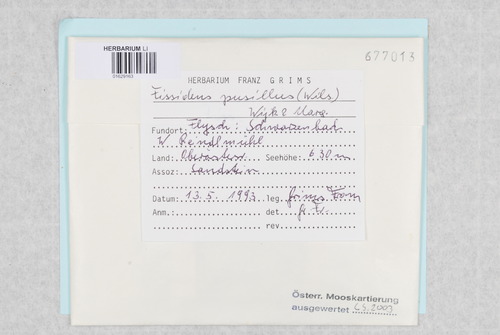 HERBARIUM LI
677013
HERBARIUM FRANZ GRIMS
Fissidens pusillus (Wils)
Wijk & Marg.
Fundort: Flysch: Schwarzenbach
W Reindlmühl
Land: Oberösterr. Seehöhe: 630 m
Assoz: Sandstein
Datum: 13.5.1993 leg. Grims Franz
Anm.: det
rev.
Österr. Mooskartierung
ausgewertet LS.2003